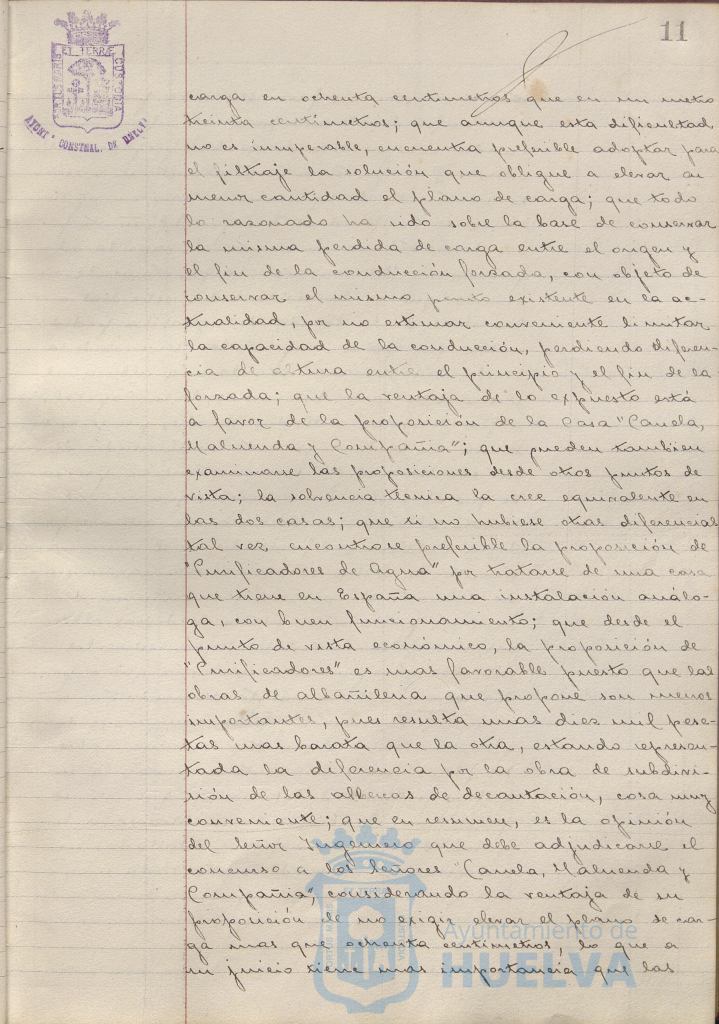 11
ET TERRÆ
CUSTODIA
PORTUS MARIS
AYUNT.º CONSTNAL. DE HUELVA
carga en ochenta centimetros que en un metro
treinta centímetros; que aunque esta dificultad
no es insuperable, encuentra preferible adoptar para
el filtraje la solución que obligue a elevar en
menor cantidad el plano de carga; que todo
lo razonado ha sido sobre la base de conservar
la misma perdida de carga entre el origen y
el fin de la conducción forzada, con objeto de
conservar el mismo punto existente en la ac-
tualidad, por no estimar conveniente limitar
la capacidad de la conducción, perdiendo diferen-
cia de altura entre el principio y el fin de la
forzada; que la ventaja de lo expuesto está
a favor de la proposición de la Casa "Canela,
Maluenda y Compañia"; que pueden tambien
examinarse las proposiciones desde otros puntos de
vista; la solvencia técnica la cree equivalente en
las dos casas; que si no hubiese otras diferencias
tal vez encontrase preferible la proposición de
"Purificadores de Agua" por tratarse de una casa
que tiene en España una instalación análo-
ga, con buen funcionamiento; que desde el
punto de vista económico, la proposición de
"Purificadores" es mas favorable puesto que las
obras de albañileria que propone son menos
importantes, pues resulta unas diez mil pese-
tas mas barata que la otra, estando represen-
tada la diferencia por la obra de subdivi-
sión de las albercas de decantación, cosa muy
conveniente; que en resumen, es la opinión
del Señor Ingeniero que debe adjudicarse el
concurso a los Señores "Canela, Maluenda y
Compañia", considerando la ventaja de su
proposición de no exigir elevar el plano de car-
ga mas que ochenta centímetros, lo que a
su juicio tiene mas importancia que las
Ayuntamiento de
HUELVA